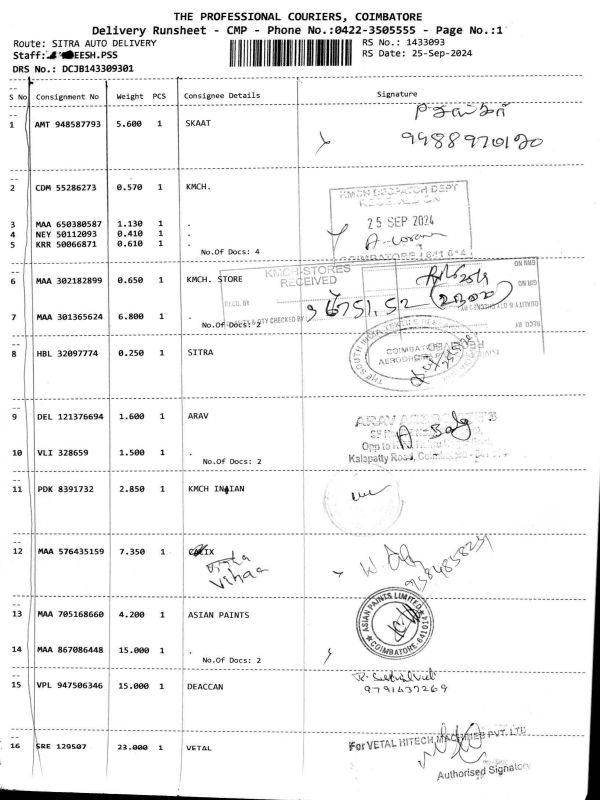 THE PROFESSIONAL COURIERS, COIMBATORE
Delivery Runsheet - CMP - Phone No.:0422-3505555 - Page No.:1
Route: SITRA AUTO DELIVERY
RS No.: 1433093
Staff: EESH.PSS
RS Date: 25-Sep-2024
DRS No.: DCJB143309301
S No Consignment No Weight PCS Consignee Details Signature
1 AMT 948587793 5.600 1 SKAAT
9988970120
2 CDM 55286273 0.570 1 KMCH.
KMCH DESPATCH DEPT
RECEIVED ON
25 SEP 2024
3 MAA 650380587 1.130 1 .
4 NEY 50112093 0.410 1 .
5 KRR 50066871 0.610 1 .
No.Of Docs: 4
COIMBATORE - 641 014
6 MAA 302182899 0.650 1 KMCH. STORE
KMCH-STORES
RECEIVED
GRN NO
GIN NO
RECD. BY
QTY CHECKED BY
96751.52
7 MAA 301365624 6.800 1 .
No.Of Docs: 2
RECD. BY
8 HBL 32097774 0.250 1 SITRA
THE SOUTH INDIA TEXTILE RE
COIMBATORE
AERODROME
9 DEL 121376694 1.600 1 ARAV
Kalapatty Road, Coimbatore
10 VLI 328659 1.500 1 .
No.Of Docs: 2
11 PDK 8391732 2.850 1 KMCH INDIAN
12 MAA 576435159 7.350 1 CALIX
Vihaa
9584858231
13 MAA 705168660 4.200 1 ASIAN PAINTS
ASIAN PAINTS LIMITED
COIMBATORE 641014
14 MAA 867086448 15.000 1 .
No.Of Docs: 2
15 VPL 947506346 15.000 1 DEACCAN
9791437269
16 SRE 129507 23.000 1 VETAL
For VETAL HITECH MACHINES PVT. LTD
Authorised Signatory